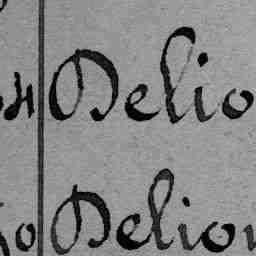 4 Delio
0 Delion